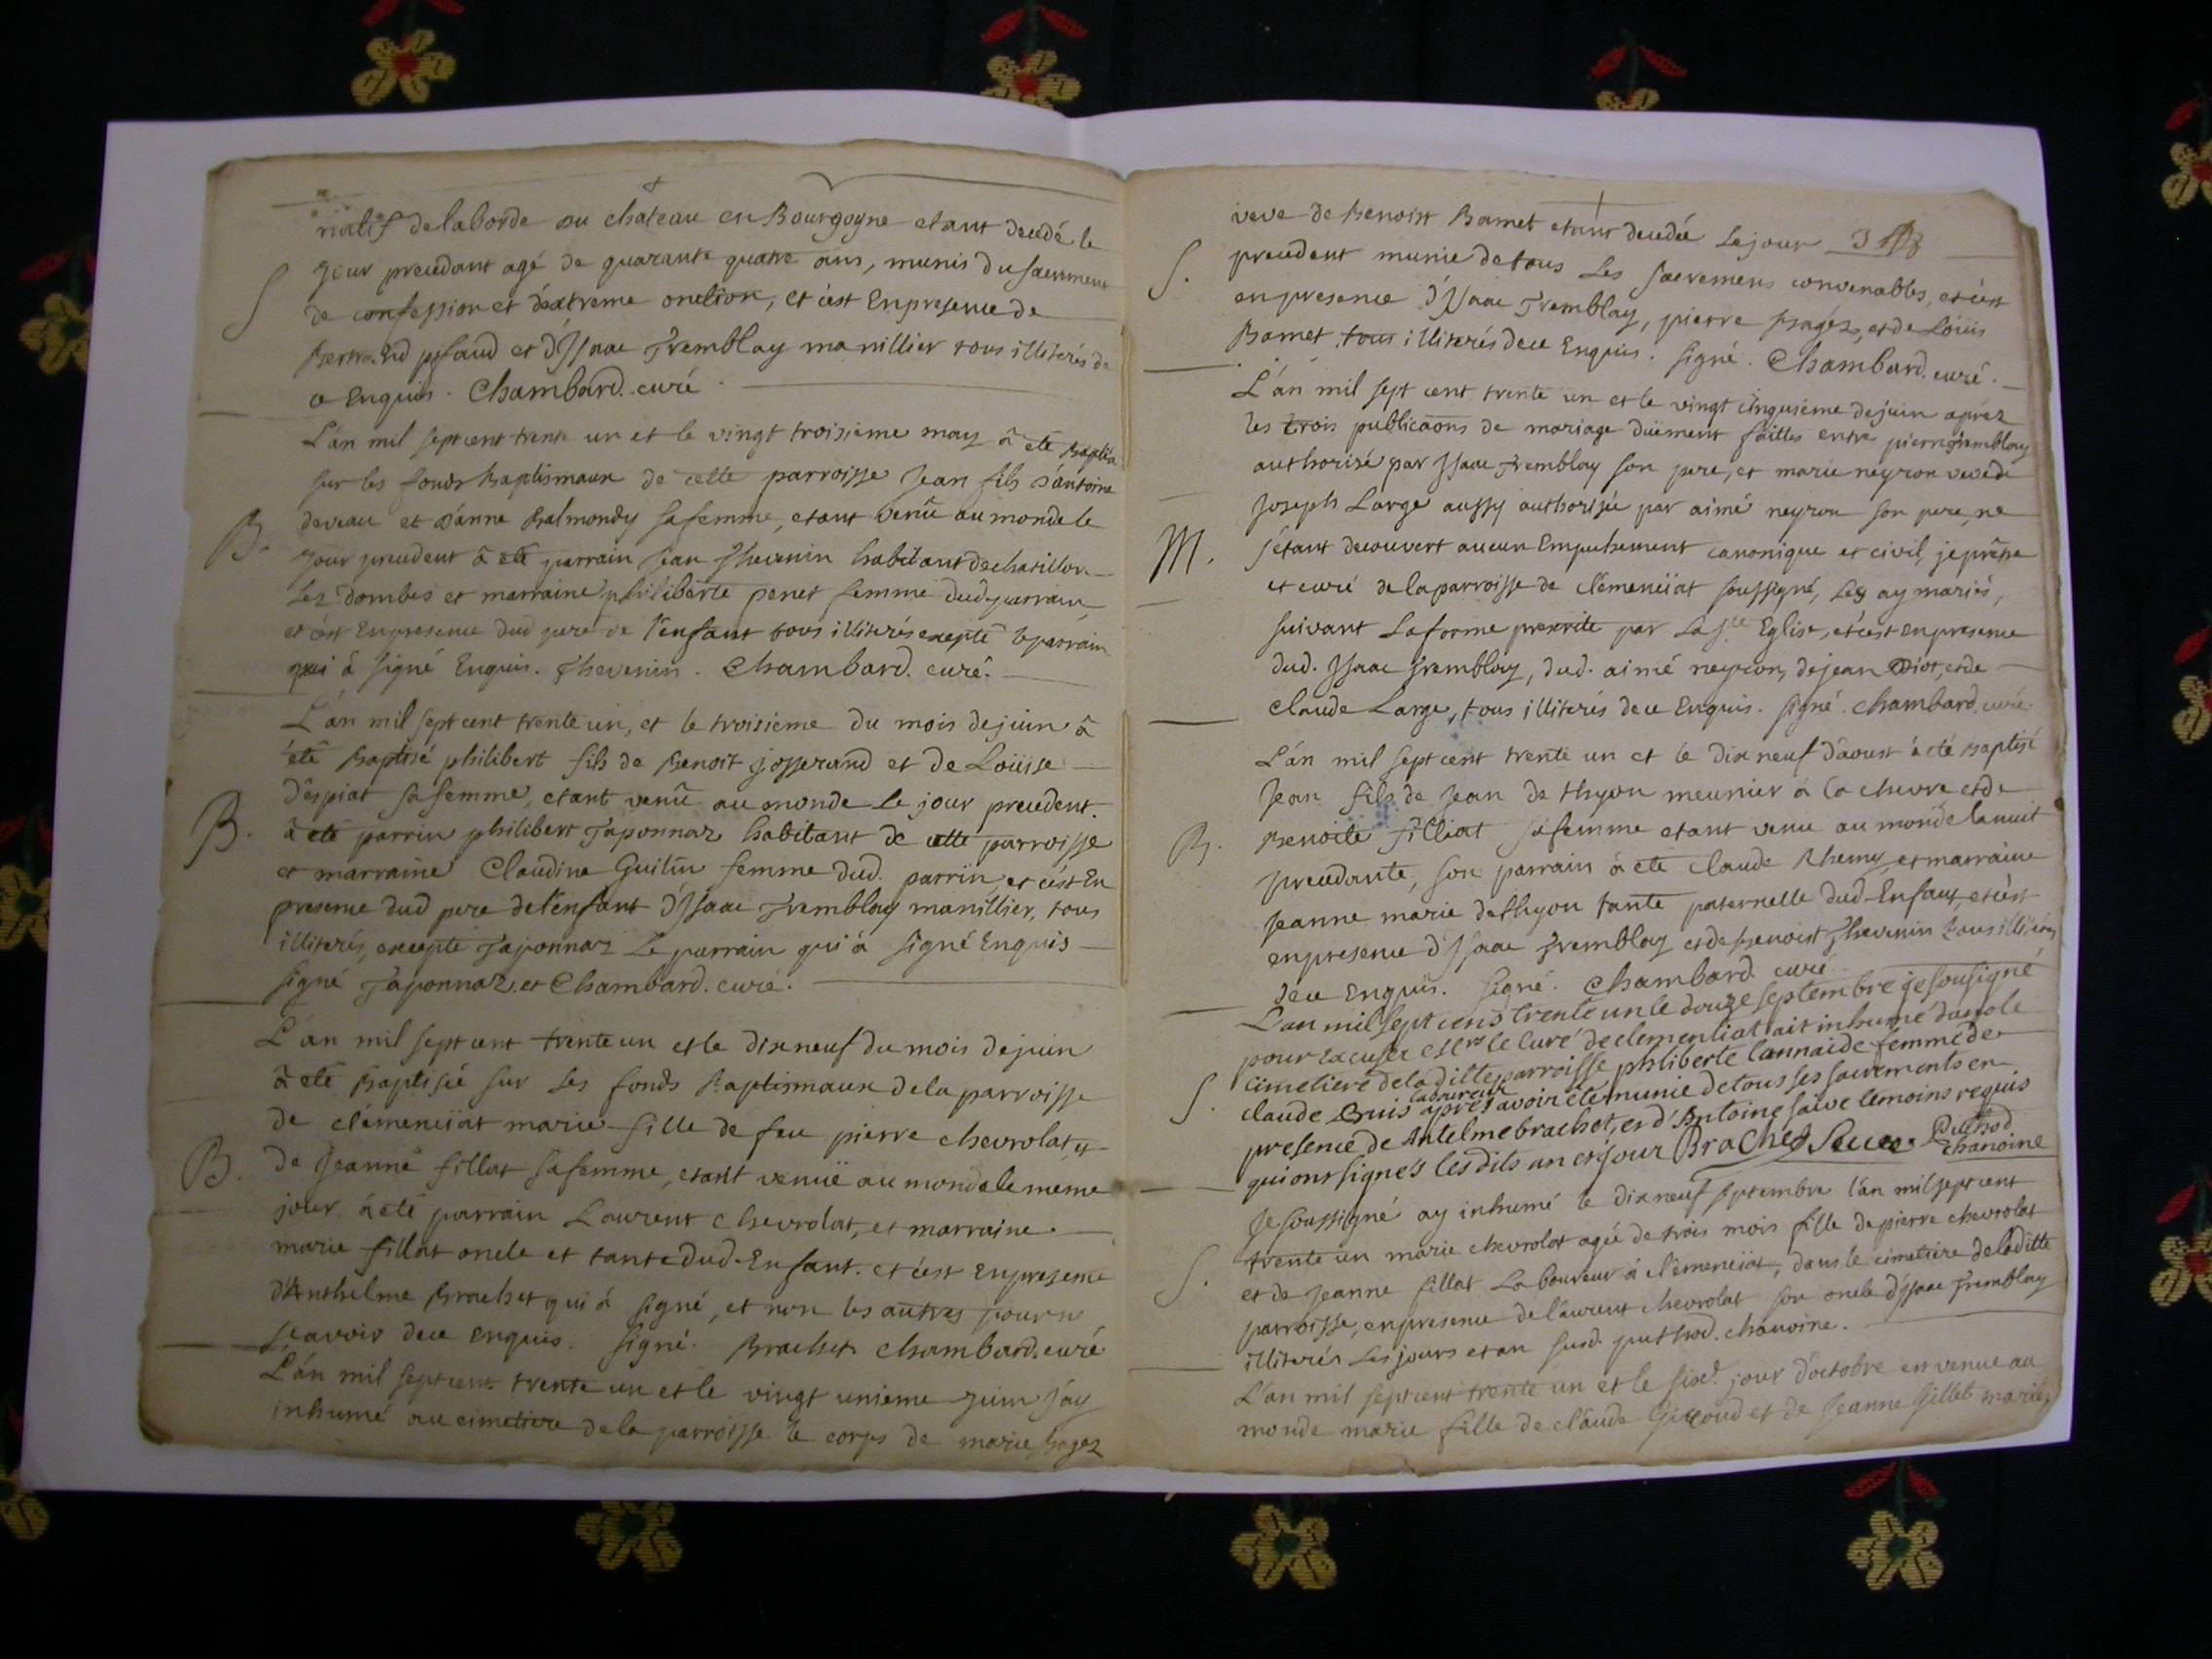 natif de laborde au chateau en Bourgogne etant decedé le
S jour precedant agé de quarante quatre ans, munis du sacrement
de confession et d'extreme onction, et c'est En presence de
et d'Isaac Tremblay manillier tous illiterés de
ce Enquis. Chambard. curé.
L'án mil sept cent trente un et le vingt troisieme may â eté Baptisé
sur les fonds Baptismaux de cette parroisse Jean fils d'antoine
B. deveau et d'anne Balmondy sa femme, etant venû au monde le
jour precedent â eté parrain Jean Thevenin habitant de chatillon
Lez Dombes et marraine philiberte penet femme dud. parrain
et c'est En presence dud pere de l'enfant tous illiterés excepté le parrain
qui â signé Enquis. Thevenin. Chambard. curé.
L'án mil sept cent trente un, et le troisieme du mois de juin â
été Baptisé philibert fils de Benoit josserand et de Loüise
d'espiat sa femme, etant venû au monde Le jour precedent.
B. â eté parrin philibert Taponnaz habitant de cette parroisse
et marraine Claudine Guilin femme dud. parrin, et c'est En
presence dud pere de l'enfant d'Isaac Tremblay manillier, tous
illiterés, excepté Taponnaz Le parrain qui à signé Enquis
signé Taponnaz. et Chambard. curé.
L'án mil sept cent trente un et le dix neuf du mois de juin
â eté Baptisée sur Les fonds Baptismaux de la parroisse
de clémenciat marie fille de feu pierre chevrolat et
B. de Jeanne fillat sa femme, etant venuë au monde le méme
jour. à eté parrain Laurent chevrolat, et marraine
marie fillat oncle et tante dud. Enfant. et c'est En presence
d'Anthelme Brachet qui à signé, et non les autres pour ne
sçavoir de ce enquis. signé. Brachet. Chambard. curé
L'án mil sept cent trente un et le vingt unieme juin j'ay
inhumé au cimetiere de la parroisse le corps de marie
veve de Benoist Bamet etant decedée Le jour 3
S. precedent munie de tous Les sacremens convenables, et c'est
en presence d'Isaac Tremblay, pierre et de Loüis
Bamet, tous illiterés de ce Enquis. signé. Chambard. curé.
L'án mil sept cent trente un et le vingt cinquieme de juin aprez
les trois publicaons de mariage düement faittes entre pierre tremblay
authorisé par Isaac Tremblay son pere, et marie neyron veve de
Joseph Large aussy authorisée par aimé neyron son pere, ne
M. s'étant decouvert aucun Empechement canonique et civil, je prêtre
et curé de la parroisse de clémenciat soussigné, Les ay mariés,
suivant La forme prescrite par La Ste Eglise, et c'est en presence
dud. Isaac Tremblay, dud. aimé neyron, de jean Diot, et de
claude Large, tous illiterés de ce Enquis. signé. chambard. curé.
L'án mil sept cent trente un et le dix neuf d'aoust à eté Baptisé
Jean fils de Jean de thyon meunier à la chevre et de
B. Benoite filliat sa femme etant venu au monde la nuit
precedante, son parrain à eté claude Rhemy et marraine
Jeanne marie dethyon tante paternelle dud. Enfant, et c'est
en presence d'Isaac Tremblay et de Benoist Thevenin tous illiterés
de ce Enquis. signé. Chambard. curé
L'an mil sept cens trente un le douze septembre je sousigné
pour Excuser le Curé de clementiat ait inhumé dans le
cimetiere de la ditte parroisse philiberte Lannaide femme de
laboureur
S. claude Bruis après avoir été munie de tous ses sacrements en
presence de Antelme brachet, et d'Antoine saive temoins requis
qui ont signés les dits an et jour Brachet Seive. Puthod
chanoine
Je soussigné ay inhumé le dix neuf septembre l'an mil sept cent
trente un marie chevrolat agée de trois mois fille de pierre chevrolat
S. et de Jeanne fillat Laboureur à clémenciat, dans le cimetiere de laditte
parroisse, en presence de laurent chevrolat son oncle d'Isaac Tremblay
illiterés Les jours et an susd. puthod. chanoine.
L'an mil sept cent trente un et le sixe. jour d'octobre est venue au
monde marie fille de claude Giroud et de Jeanne Gillet mariés